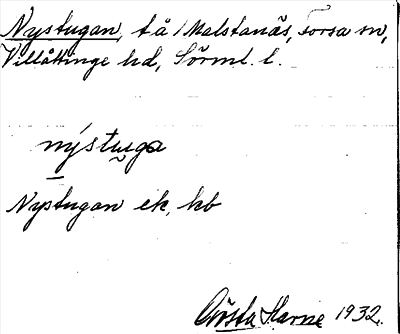 Nystugan, t å Malstanäs, Torsa sn,
Villåttinge hd, Sörml. l.
nýstuga
Nystugan ek, kb
Gösta Harne 1932.